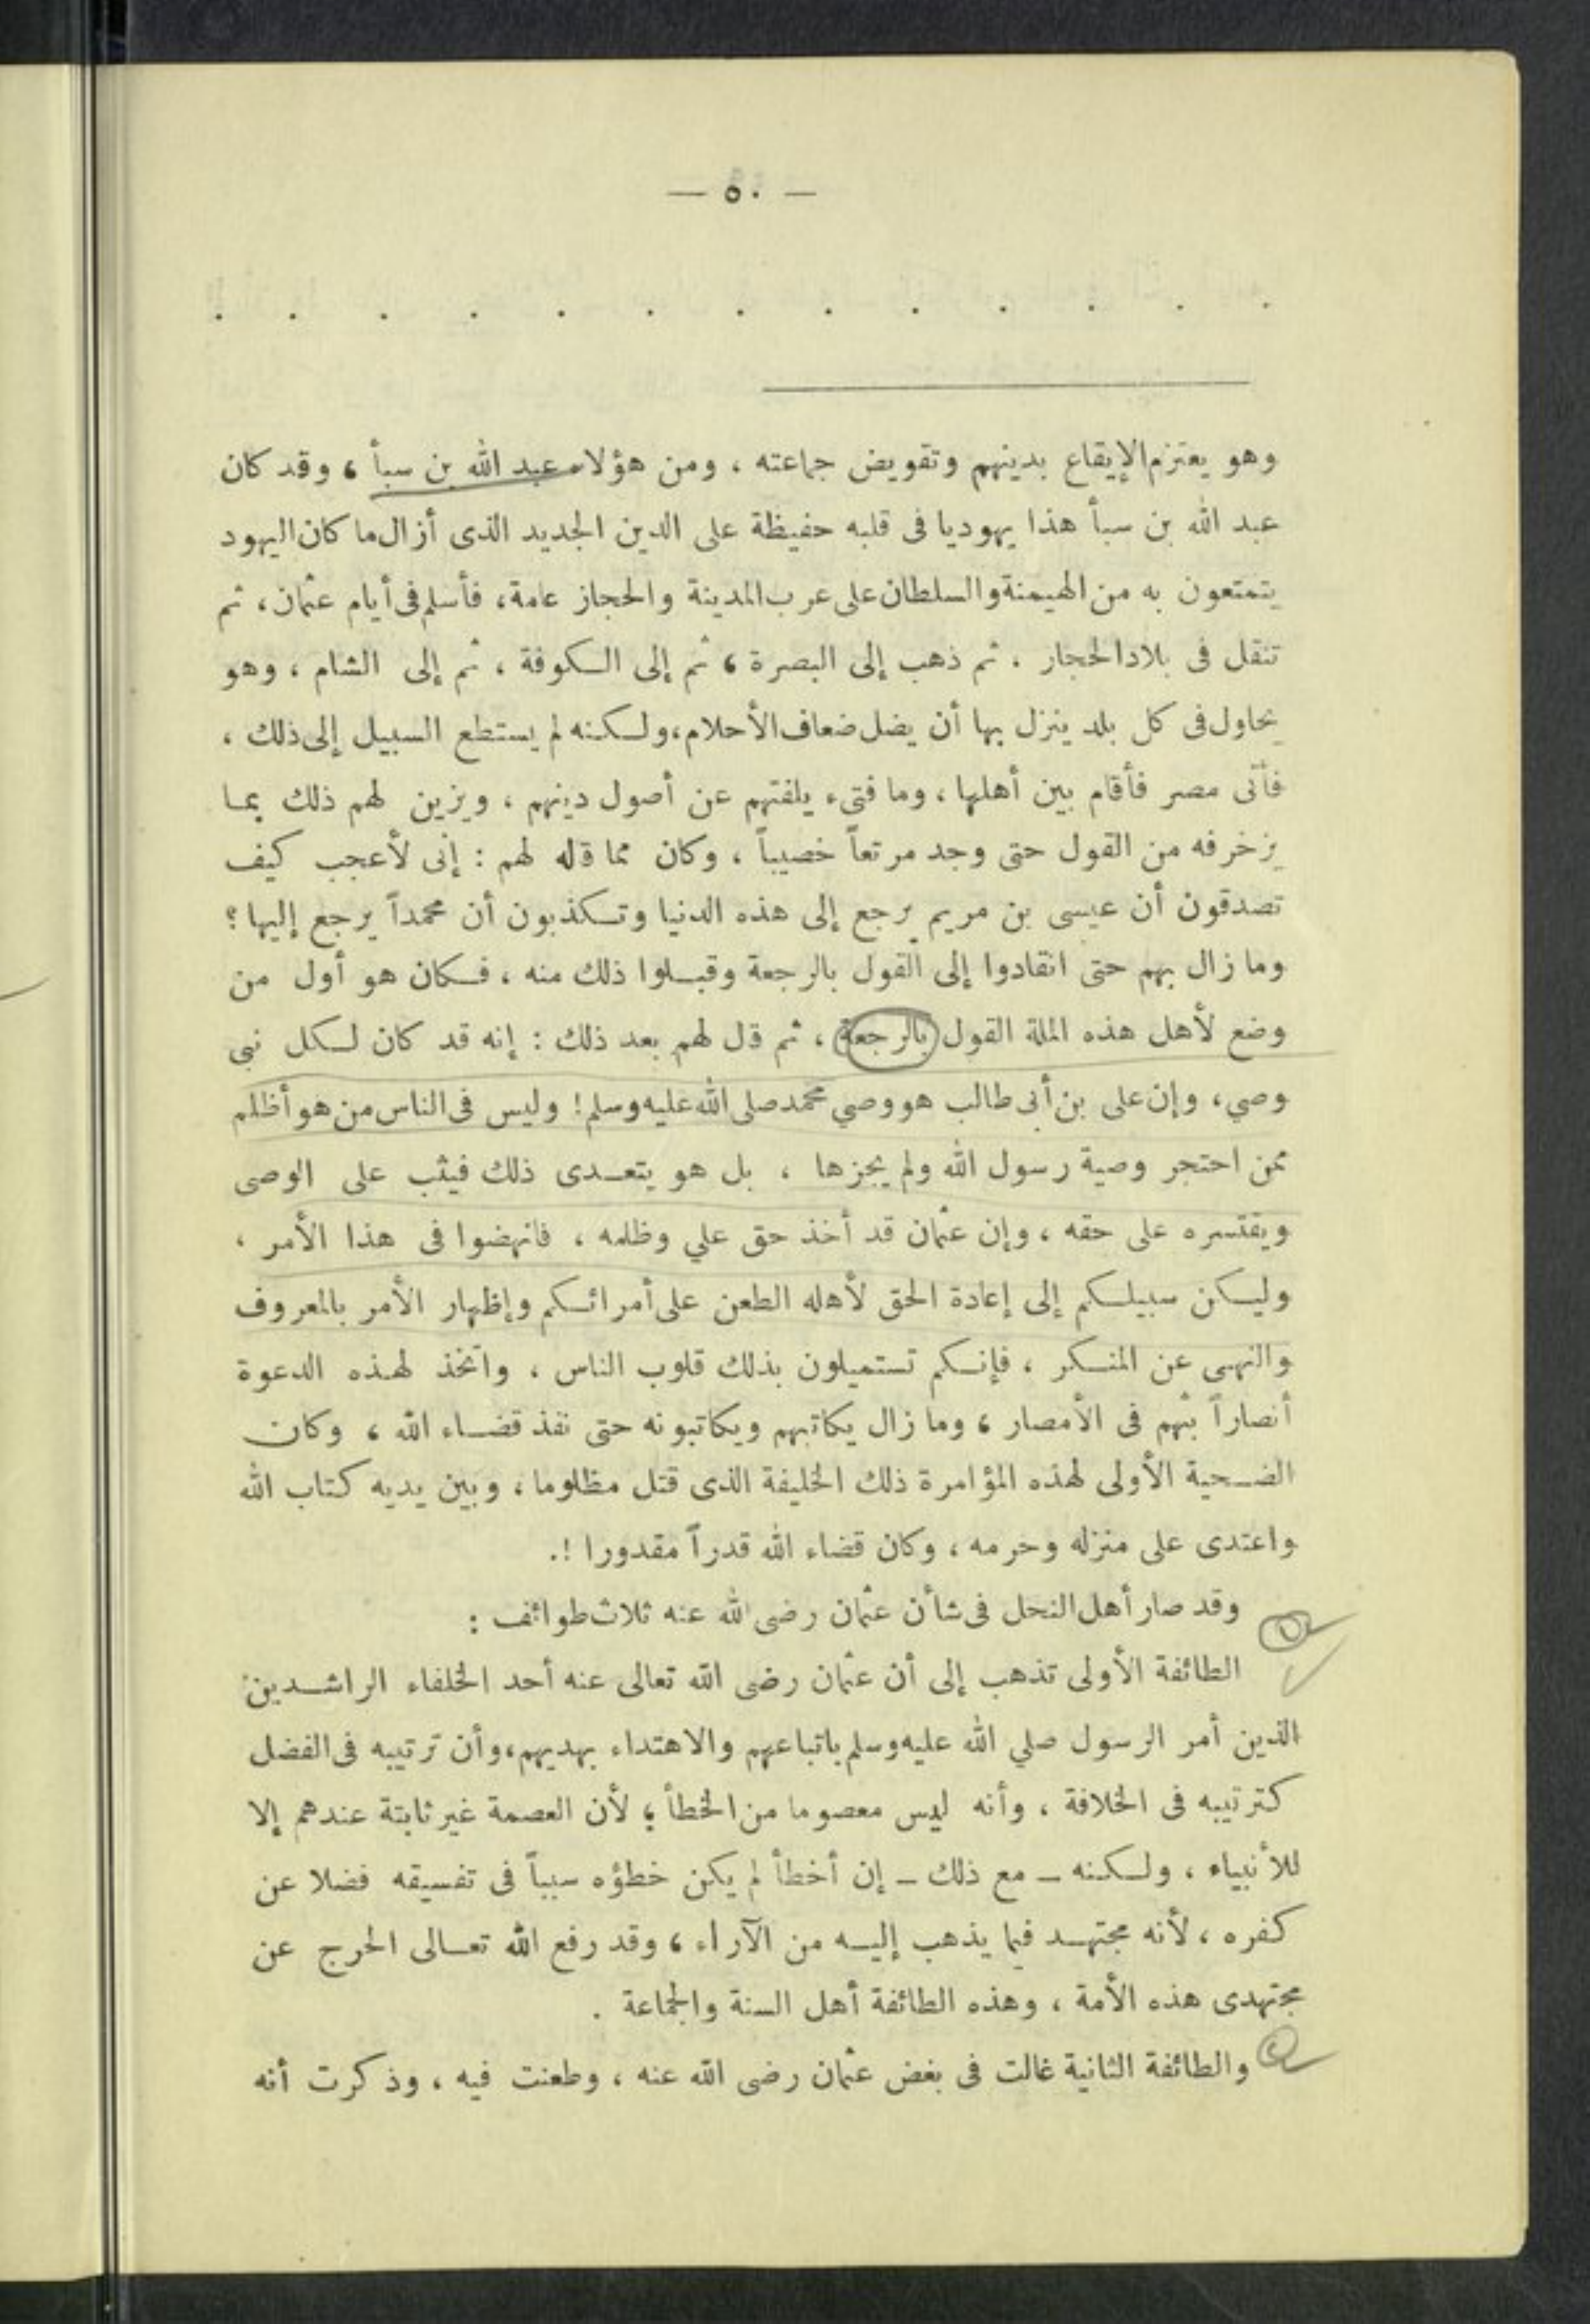 — ٥٠ —
. . . . . . . . . . . . .
وهو يعتزم الإيقاع بدينهم وتقويض جماعته ، ومن هؤلاء عبد الله بن سبأ ، وقد كان
عبد الله بن سبأ هذا يهوديا فى قلبه حفيظة على الدين الجديد الذى أزال ما كان اليهود
يتمتعون به من الهيمنة والسلطان على عرب المدينة والحجاز عامة ، فأسلم فى أيام عثمان ، ثم
تنقل فى بلاد الحجاز . ثم ذهب إلى البصرة ، ثم إلى الكوفة ، ثم إلى الشام ، وهو
يحاول فى كل بلد ينزل بها أن يضل ضعاف الأحلام ، ولكنه لم يستطع السبيل إلى ذلك ،
فأتى مصر فأقام بين أهلها ، وما فتىء يلفتهم عن أصول دينهم ، ويزين لهم ذلك بما
يزخرفه من القول حتى وجد مرتعاً خصيباً ، وكان مما قاله لهم : إنى لأعجب كيف
تصدقون أن عيسى بن مريم يرجع إلى هذه الدنيا وتكذبون أن محمداً يرجع إليها ؟
وما زال بهم حتى انقادوا إلى القول بالرجعة وقبلوا ذلك منه ، فكان هو أول من
وضع لأهل هذه الملة القول بالرجعة ، ثم قال لهم بعد ذلك : إنه قد كان لكل نبى
وصي ، وإن على بن أبى طالب هو وصي محمد صلى الله عليه وسلم ! وليس فى الناس من هو أظلم
ممن احتجر وصية رسول الله ولم يجزها ، بل هو يتعدى ذلك فيثب على الوصى
ويقتسره على حقه ، وإن عثمان قد أخذ حق علي وظلمه ، فانهضوا فى هذا الأمر ،
وليكن سبيلكم إلى إعادة الحق لأهله الطعن على أمرائكم وإظهار الأمر بالمعروف
والنهى عن المنكر ، فإنكم تستميلون بذلك قلوب الناس ، واتخذ لهذه الدعوة
أنصاراً بثهم فى الأمصار ، وما زال يكاتبهم ويكاتبونه حتى نفذ قضاء الله ، وكان
الضحية الأولى لهذه المؤامرة ذلك الخليفة الذى قتل مظلوما ، وبين يديه كتاب الله
واعتدى على منزله وحرمه ، وكان قضاء الله قدراً مقدورا !.
وقد صار أهل النحل فى شأن عثمان رضى الله عنه ثلاث طوائف :
١
الطائفة الأولى تذهب إلى أن عثمان رضى الله تعالى عنه أحد الخلفاء الراشدين
الذين أمر الرسول صلي الله عليه وسلم باتباعهم والاهتداء بهديهم ، وأن ترتيبه فى الفضل
كترتيبه فى الخلافة ، وأنه ليس معصوما من الخطأ ؛ لأن العصمة غير ثابتة عندهم إلا
للأنبياء ، ولكنه ــ مع ذلك ــ إن أخطأ لم يكن خطؤه سبباً فى تفسيقه فضلا عن
كفره ، لأنه مجتهد فيما يذهب إليه من الآراء ، وقد رفع الله تعالى الحرج عن
مجتهدى هذه الأمة ، وهذه الطائفة أهل السنة والجماعة .
٢
والطائفة الثانية غالت فى بغض عثمان رضى الله عنه ، وطعنت فيه ، وذكرت أنه